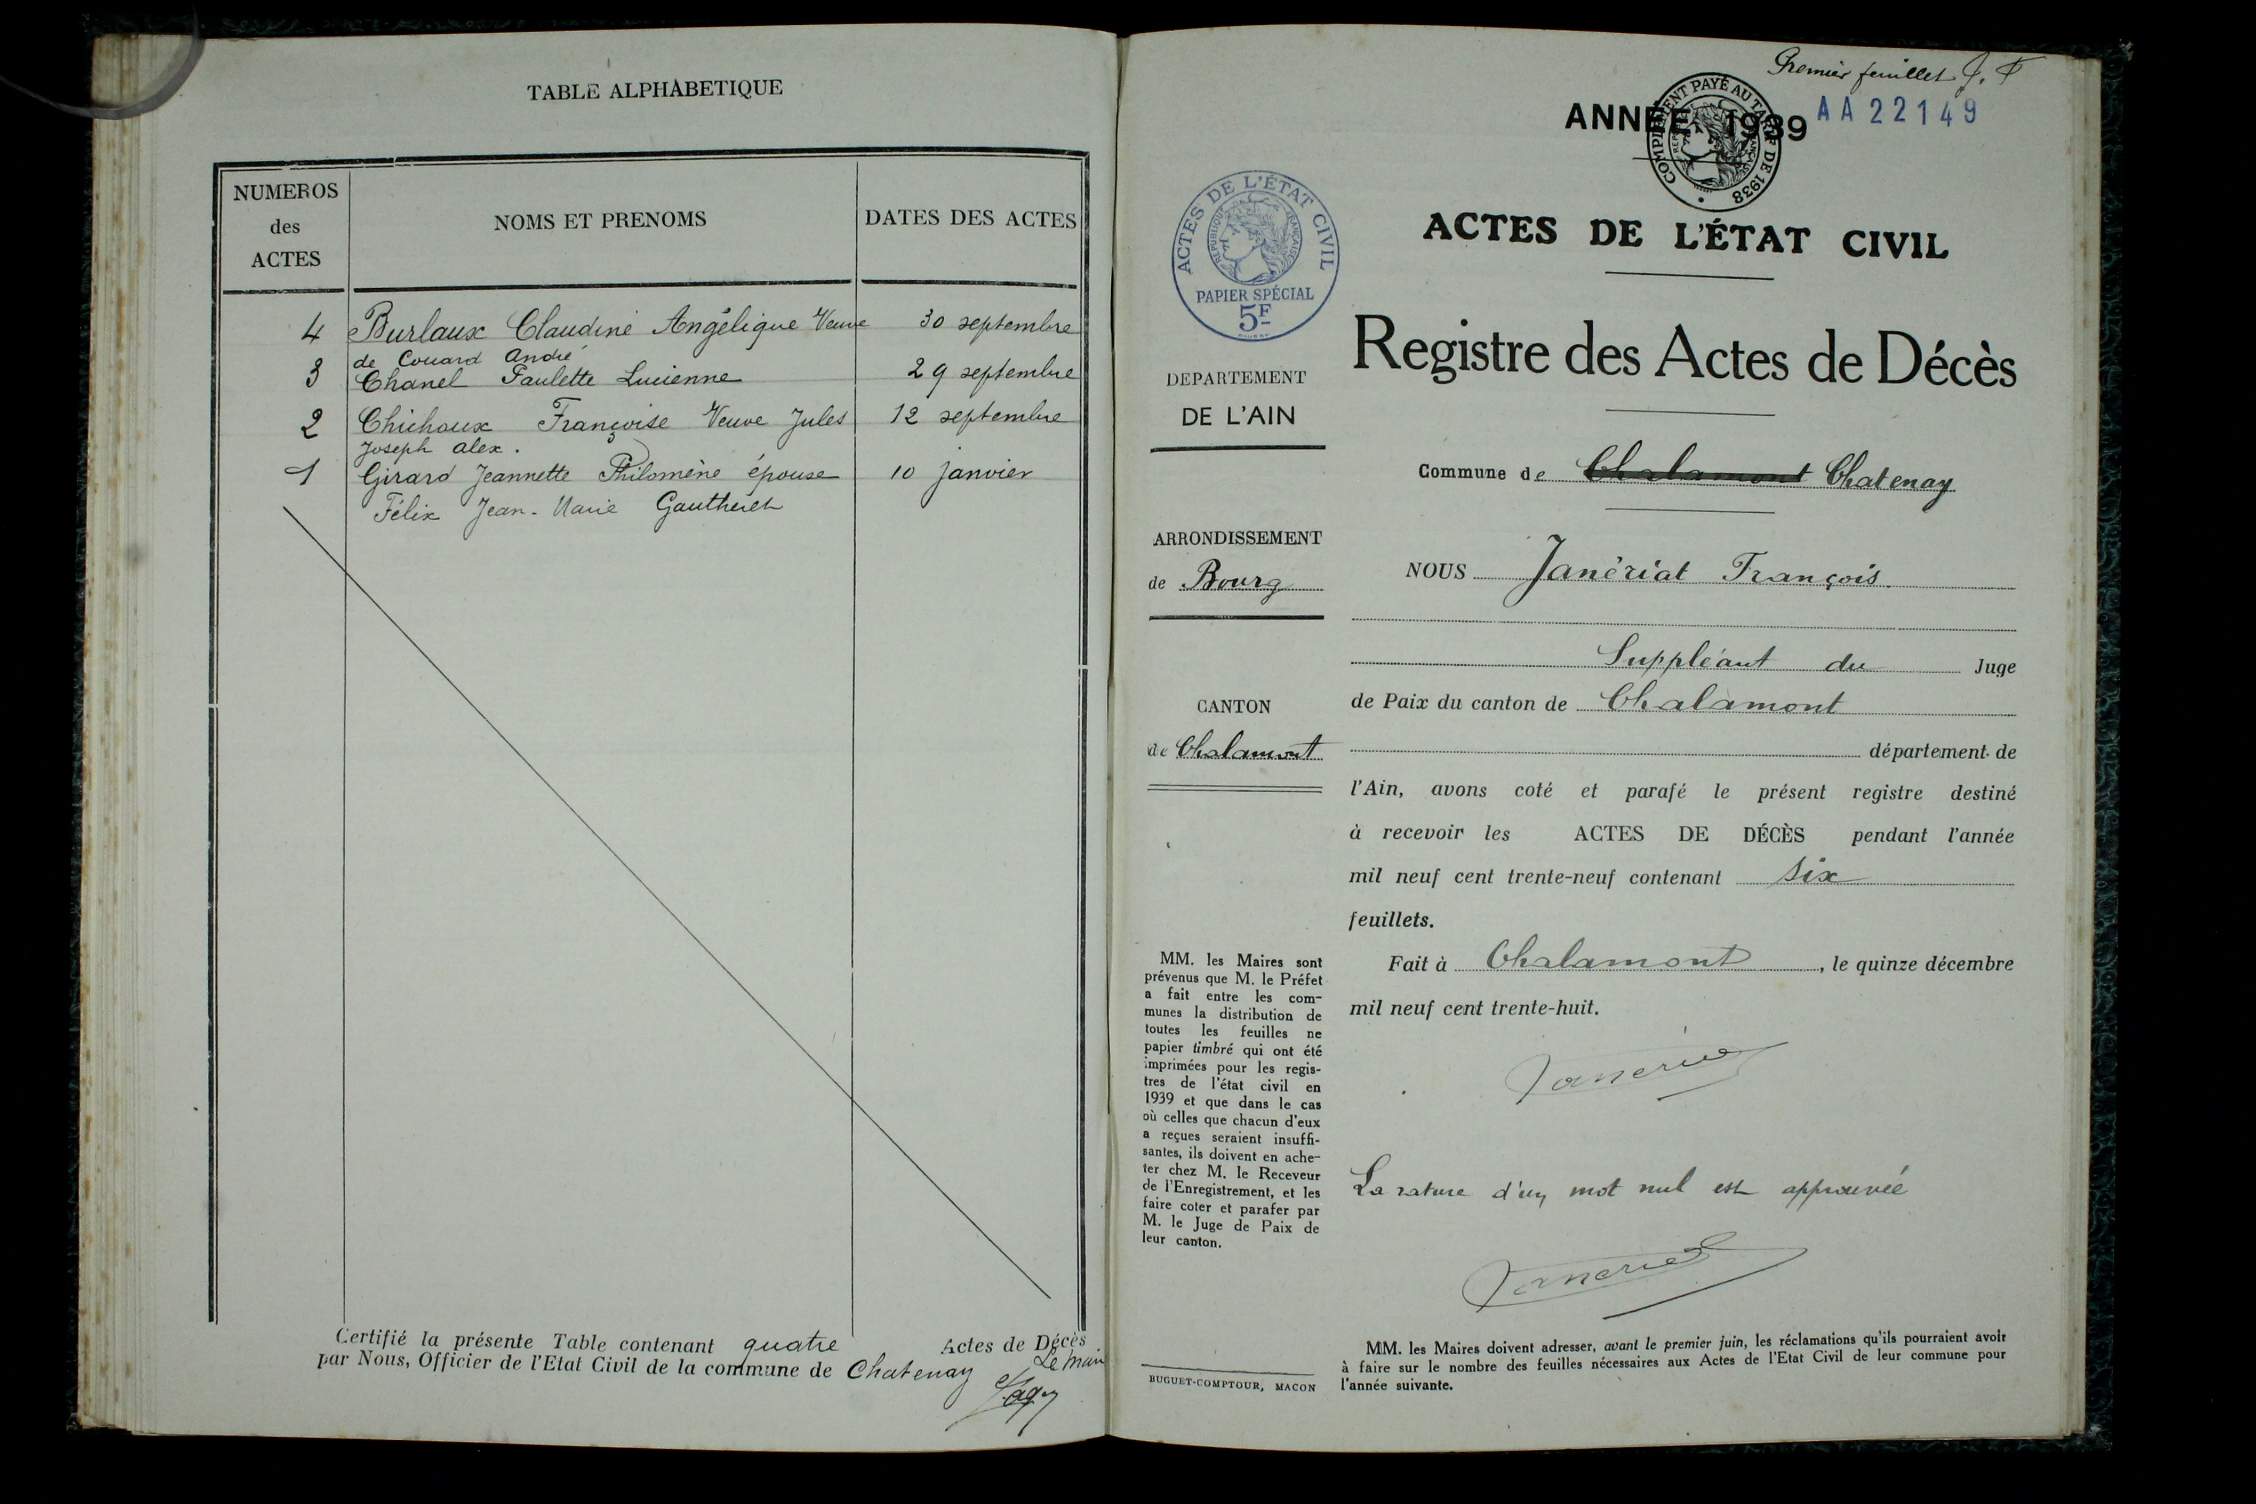 TABLE ALPHABETIQUE
NUMEROS
des
ACTES
NOMS ET PRENOMS
DATES DES ACTES
4 Burlaux Claudine Angélique Veuve 30 septembre
de Couard André
3 Chanel Paulette Lucienne 29 septembre
2 Chichoux Françoise Veuve Jules 12 septembre
Joseph Alex.
1 Girard Jeannette Philomène épouse 10 janvier
Félix Jean-Marie Gautheret
Certifié la présente Table contenant quatre Actes de Décès
par Nous, Officier de l'Etat Civil de la commune de Chatenay
Le Maire
Premier feuillet J. F
ANNÉE 1939
AA22149
COMPLEMENT PAYÉ AU TARIF DE 1938
ACTES DE L'ÉTAT CIVIL
REPUBLIQUE FRANÇAISE
PAPIER SPÉCIAL
5F
DEPARTEMENT
DE L'AIN
ARRONDISSEMENT
de Bourg
CANTON
de Chalamont
MM. les Maires sont
prévenus que M. le Préfet
a fait entre les com-
munes la distribution de
toutes les feuilles ne
papier timbré qui ont été
imprimées pour les regis-
tres de l'état civil en
1939 et que dans le cas
où celles que chacun d'eux
a reçues seraient insuffi-
santes, ils doivent en ache-
ter chez M. le Receveur
de l'Enregistrement, et les
faire coter et parafer par
M. le Juge de Paix de
leur canton.
BUGUET-COMPTOUR, MACON
ACTES DE L'ÉTAT CIVIL
Registre des Actes de Décès
Commune de Chalamont Chatenay
NOUS Janériat François.
Suppléant du Juge
de Paix du canton de Chalamont
département de
l'Ain, avons coté et parafé le présent registre destiné
à recevoir les ACTES DE DÉCÈS pendant l'année
mil neuf cent trente-neuf contenant six
feuillets.
Fait à Chalamont, le quinze décembre
mil neuf cent trente-huit.
La rature d'un mot nul est approuvée
MM. les Maires doivent adresser, avant le premier juin, les réclamations qu'ils pourraient avoir
à faire sur le nombre des feuilles nécessaires aux Actes de l'Etat Civil de leur commune pour
l'année suivante.